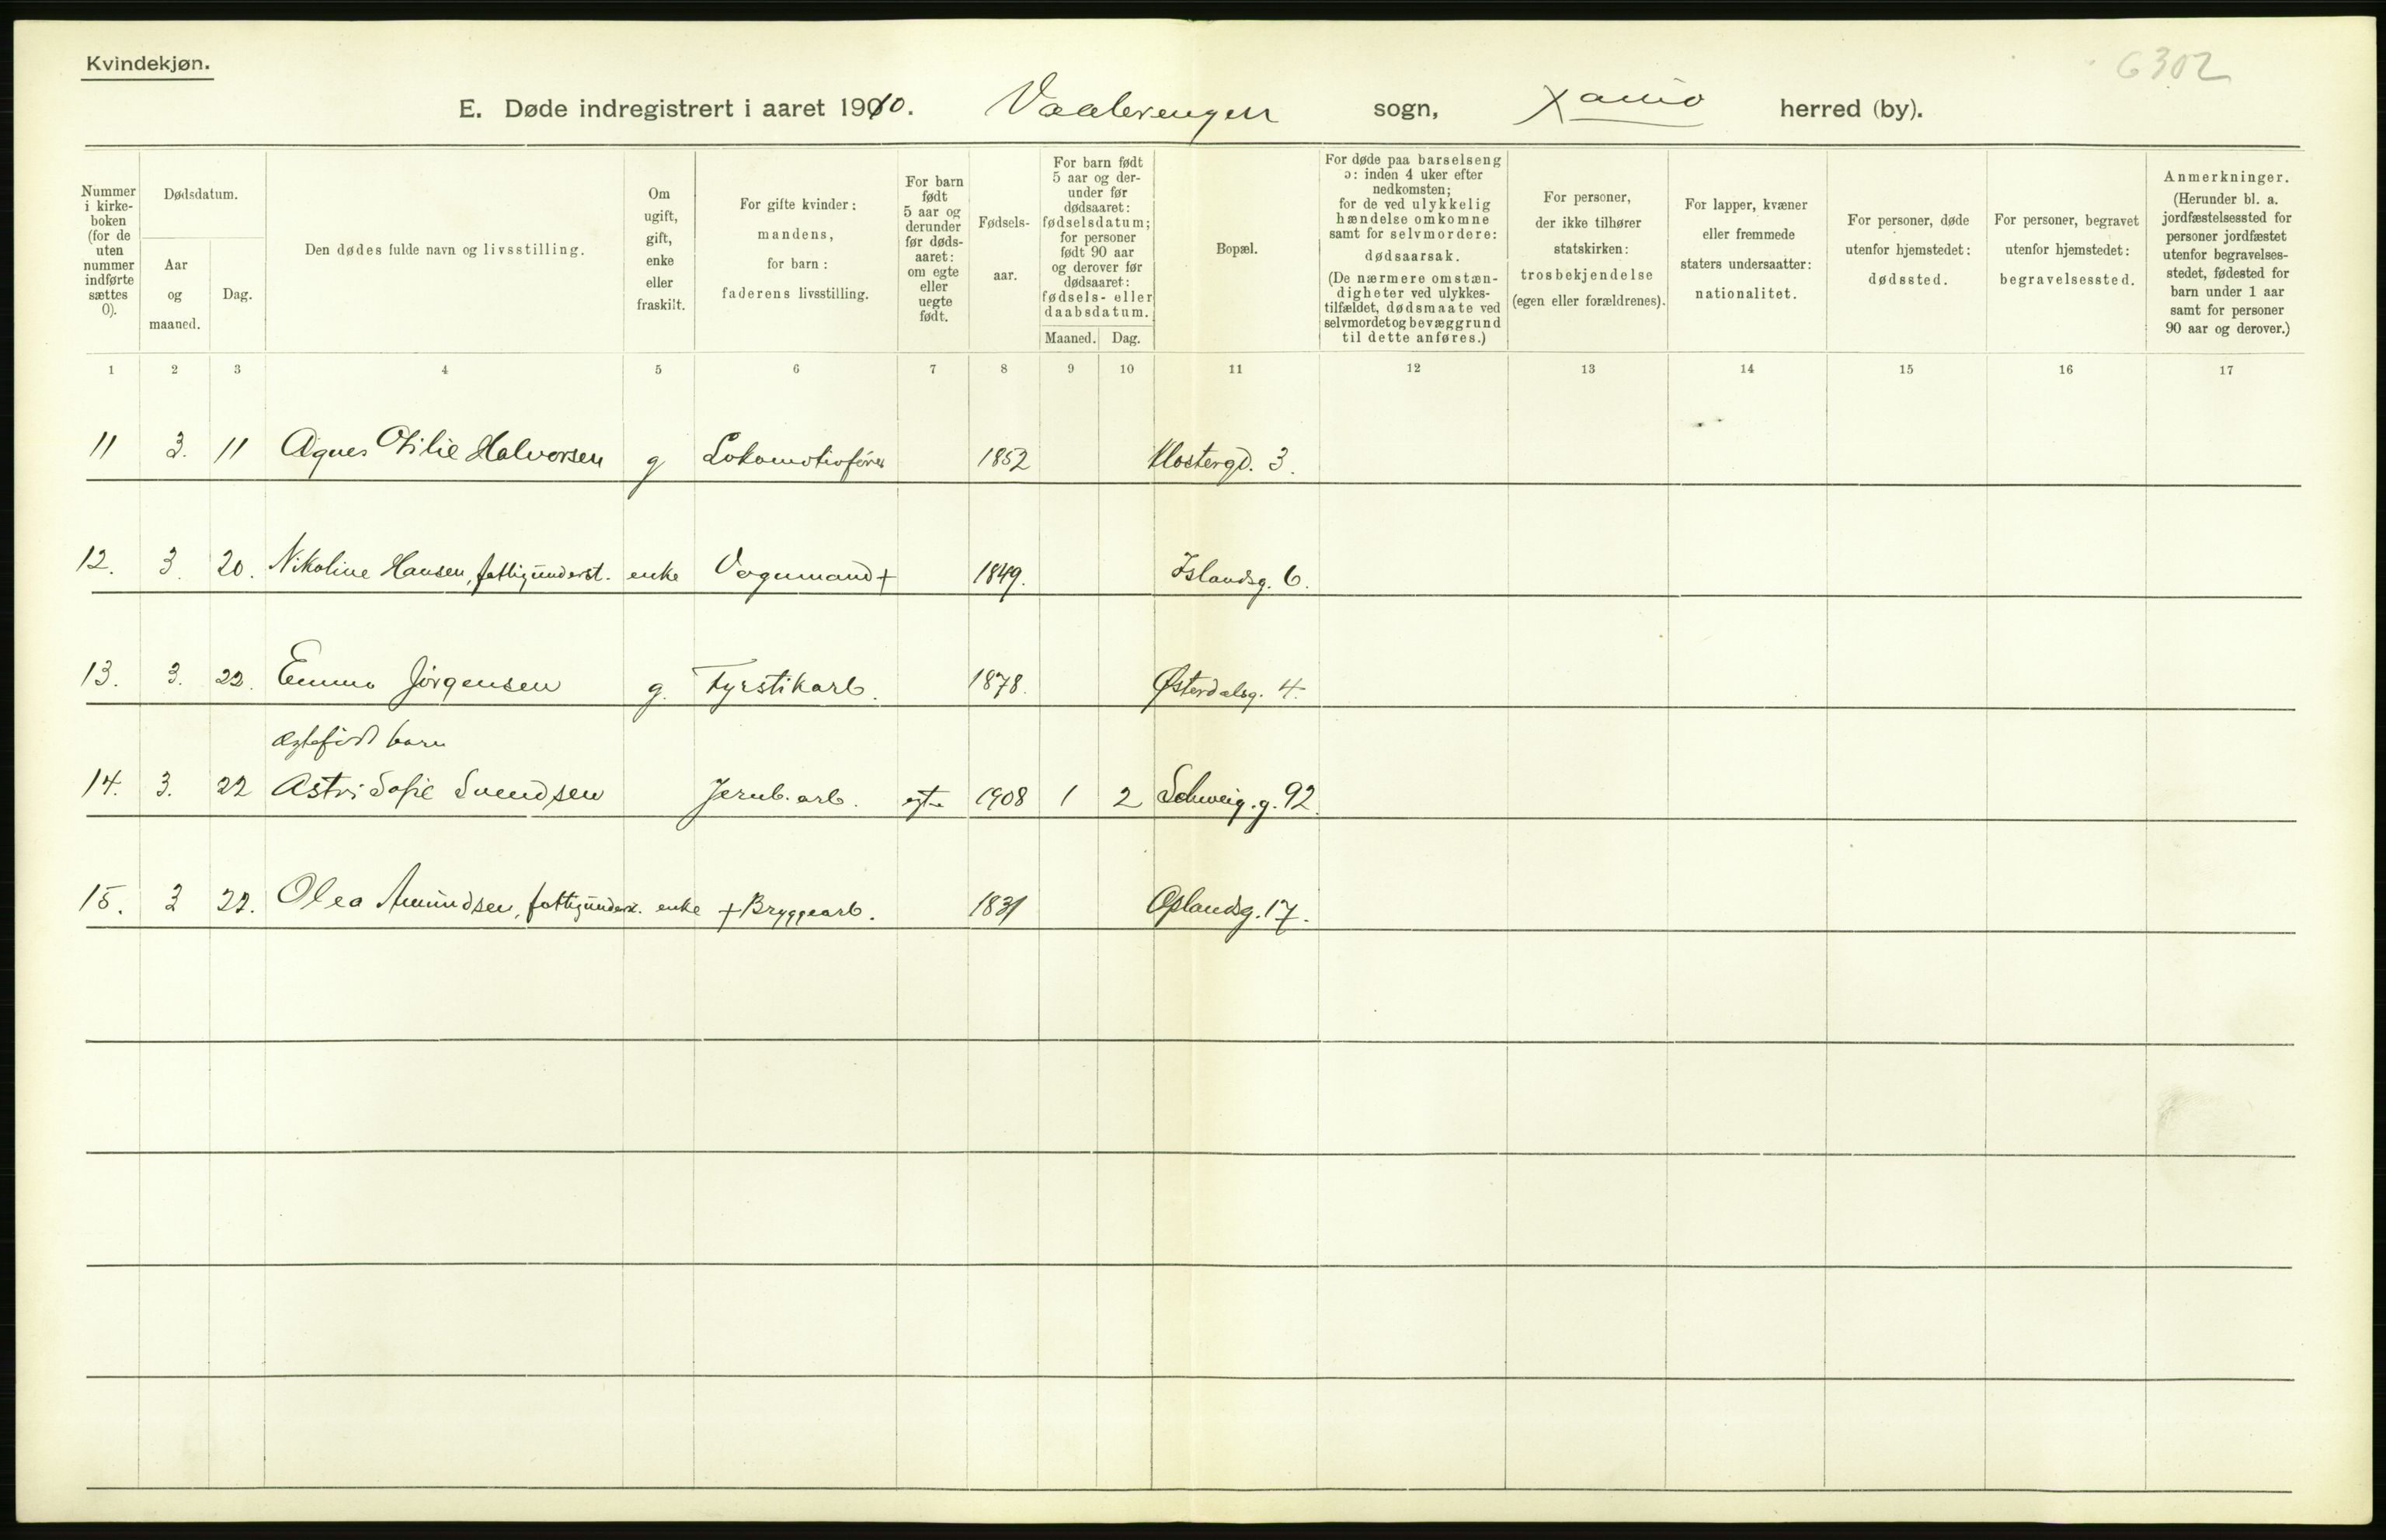 Kvindekjøn.
6302
E. Døde indregistrert i aaret 1910. Vaalerengen sogn, Xania herred (by).
Nummer i kirke-boken (for de uten nummer indførte sættes 0).
Dødsdatum.
Aar og maaned.
Dag.
Den dødes fulde navn og livsstilling.
Om ugift, gift, enke eller fraskilt.
For gifte kvinder: mandens, for barn: faderens livsstilling.
For barn født 5 aar og derunder før døds-aaret: om egte eller uegte født.
Fødsels-aar.
For barn født 5 aar og der-under før dødsaaret: fødselsdatum; for personer født 90 aar og derover før dødsaaret: fødsels- eller daabsdatum.
Maaned. Dag.
Bopæl.
For døde paa barselseng ɔ: inden 4 uker efter nedkomsten; for de ved ulykkelig hændelse omkomne samt for selvmordere: dødsaarsak. (De nærmere omstæn-digheter ved ulykkes-tilfældet, dødsmaate ved selvmordet og bevæggrund til dette anføres.)
For personer, der ikke tilhører statskirken: trosbekjendelse (egen eller forældrenes).
For lapper, kvæner eller fremmede staters undersaatter: nationalitet.
For personer, døde utenfor hjemstedet: dødssted.
For personer, begravet utenfor hjemstedet: begravelsessted.
Anmerkninger. (Herunder bl. a. jordfæstelsessted for personer jordfæstet utenfor begravelses-stedet, fødested for barn under 1 aar samt for personer 90 aar og derover.)
1 2 3 4 5 6 7 8 9 10 11 12 13 14 15 16 17
11 3. 11 Agnes Otilie Halvorsen g Lokomotivfører 1852 Klostergd. 3.
12. 3. 20. Nikoline Hansen, fattigunderst. enke Vognmand + 1849. Islandsg. 6.
13. 3. 22. Emma Jørgensen g. Fyrstikarb. 1878. Østerdalsg. 4.
Ægtefødt barn
14. 3. 22 Astri Sofie Svendsen Jernb. arb. egte 1908 1 2 Schweig. g. 92.
15. 3 22. Olea Amundsen, fattigunderst. enke + Bryggearb. 1831 Oplandsg. 17.